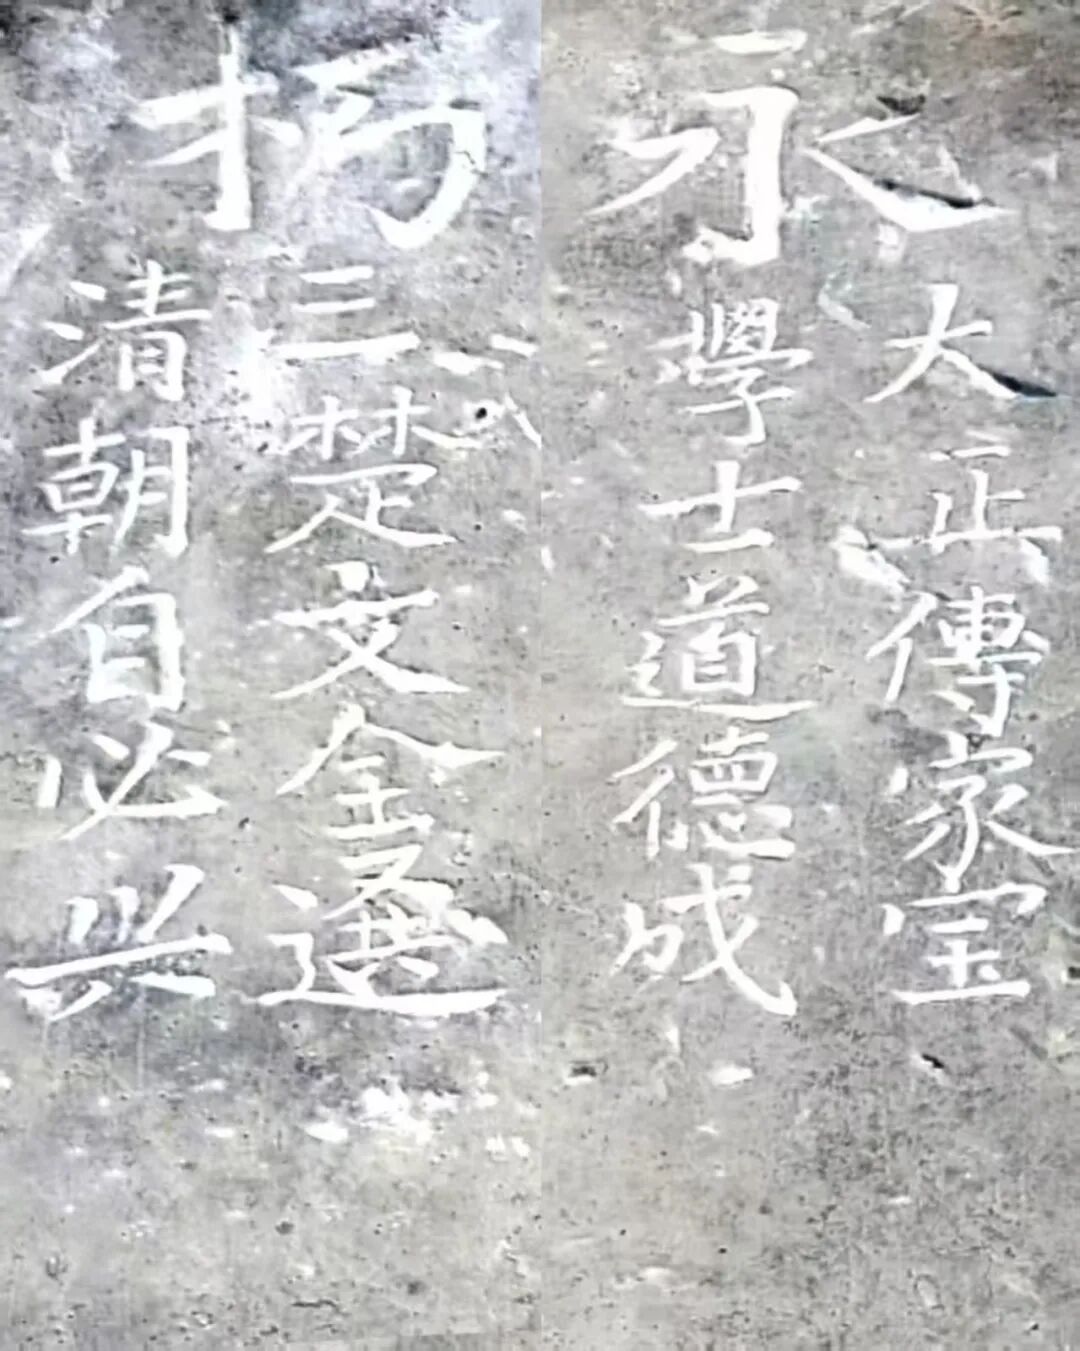 永
大正傳家宝
學士道德成
三楚文全選
清朝自必兴